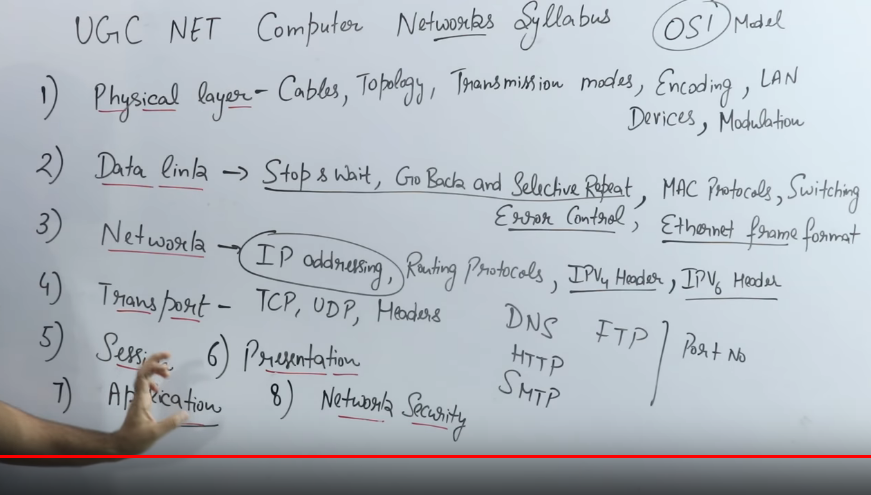 UGC NET Computer Networks Syllabus OSI Model
1) Physical layer - Cables, Topology, Transmission modes, Encoding, LAN
Devices, Modulation
2) Data link → Stop & Wait, Go Back and Selective Repeat, MAC Protocols, Switching
Error Control, Ethernet frame format
3) Network → IP addressing, Routing Protocols, IPV4 Header, IPV6 Header
4) Transport - TCP, UDP, Headers
DNS FTP Port No
5) 6) Presentation
HTTP
SMTP
7) 8) Network Security